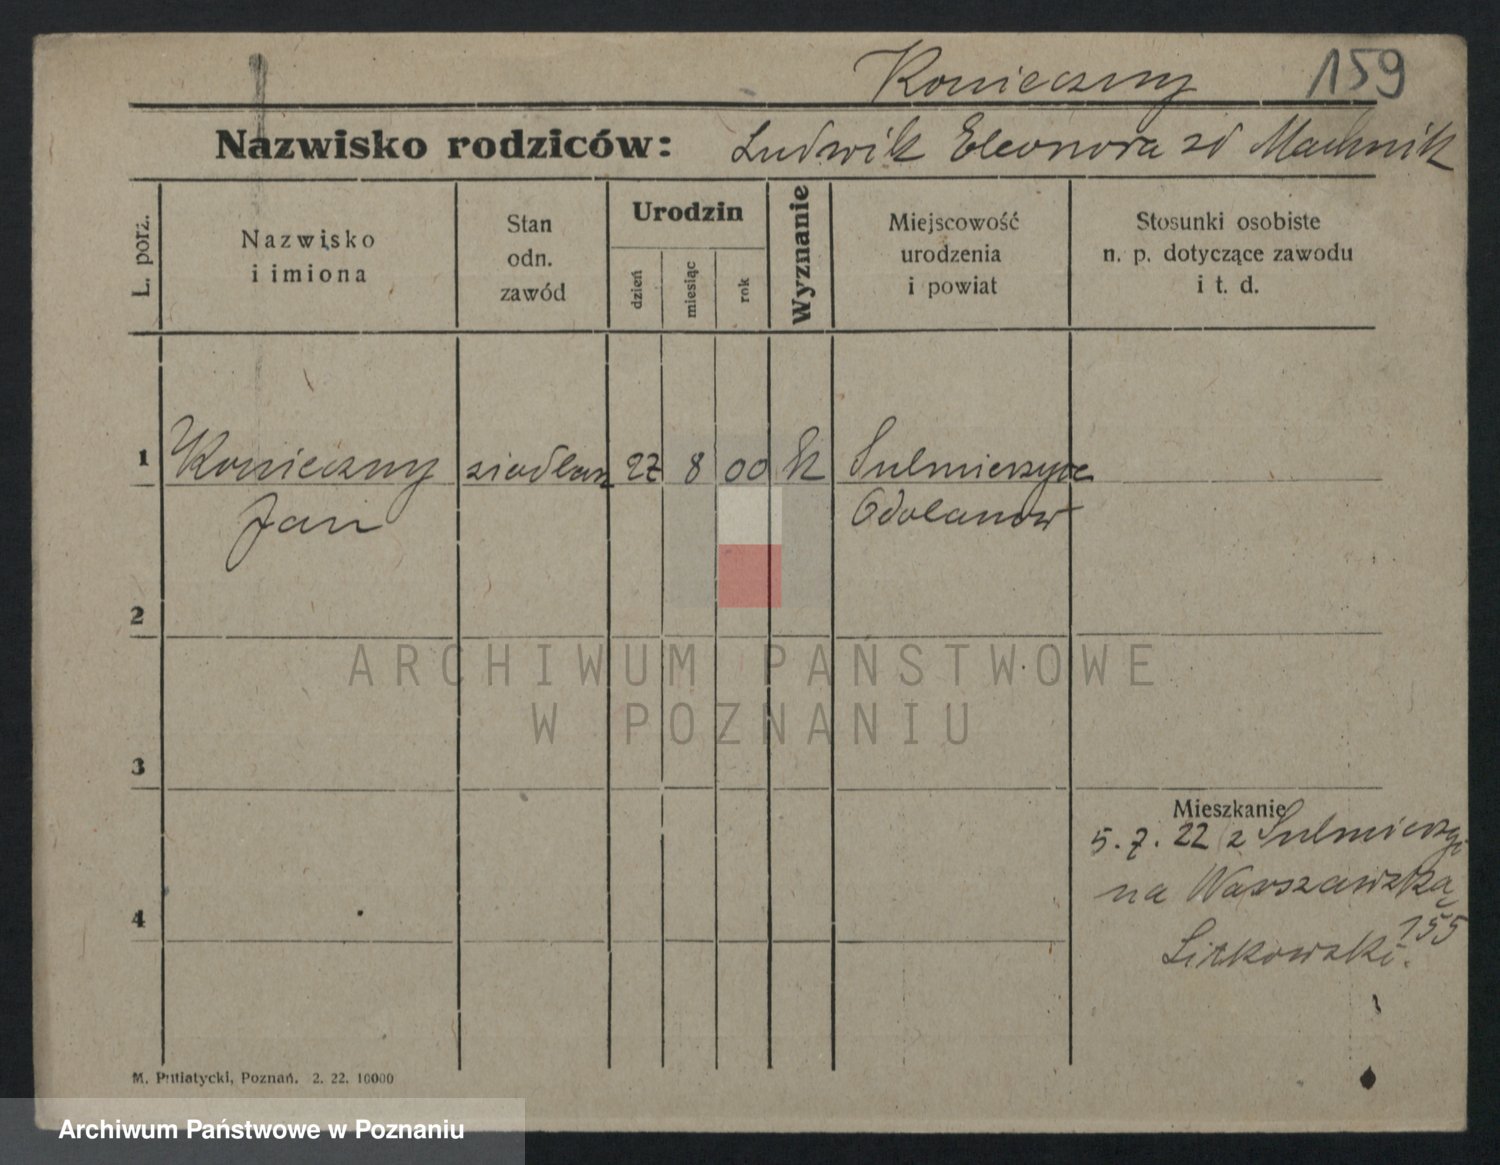 Konieczny 159
Nazwisko rodziców: Ludwik Eleonora zd Machnik
L. porz.
Nazwisko
i imiona
Stan
odn.
zawód
Urodzin
dzień
miesiąc
rok
Wyznanie
Miejscowość
urodzenia
i powiat
Stosunki osobiste
n. p. dotyczące zawodu
i t. d.
1 Konieczny siodlarz 27 8 00 k Sulmierzyce
Jan Odolanów
2
ARCHIWUM PAŃSTWOWE
W POZNANIU
3
Mieszkanie
5.7.22 z Sulmierzyc
na Warszawską
4
155
M. Putiatycki, Poznań. 2. 22. 10000
Archiwum Państwowe w Poznaniu